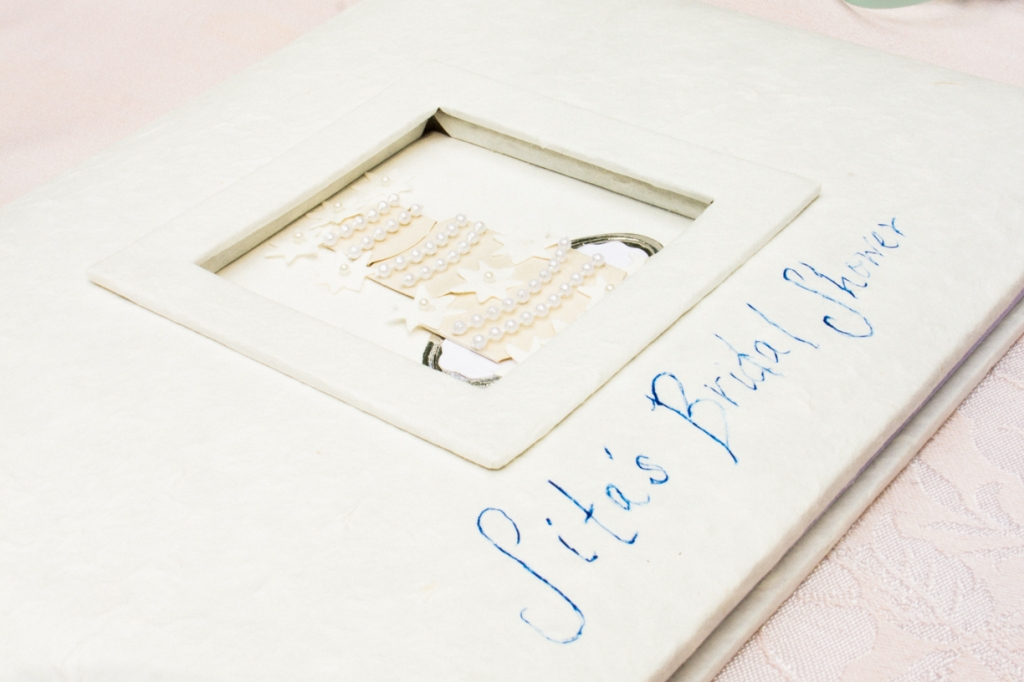 Sita's Bridal Shower